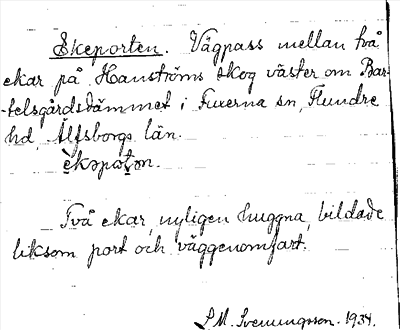 Ekeporten. Vägpass mellan två
ekar på Hanströms skog väster om Bar-
-telsgårdsdämmet i Fuxerna sn, Flundre
hd, Älfsborgs län.
Två ekar, nyligen huggna, bildade
liksom port och väggenomfart.
S.M. Svenungsson. 1934.